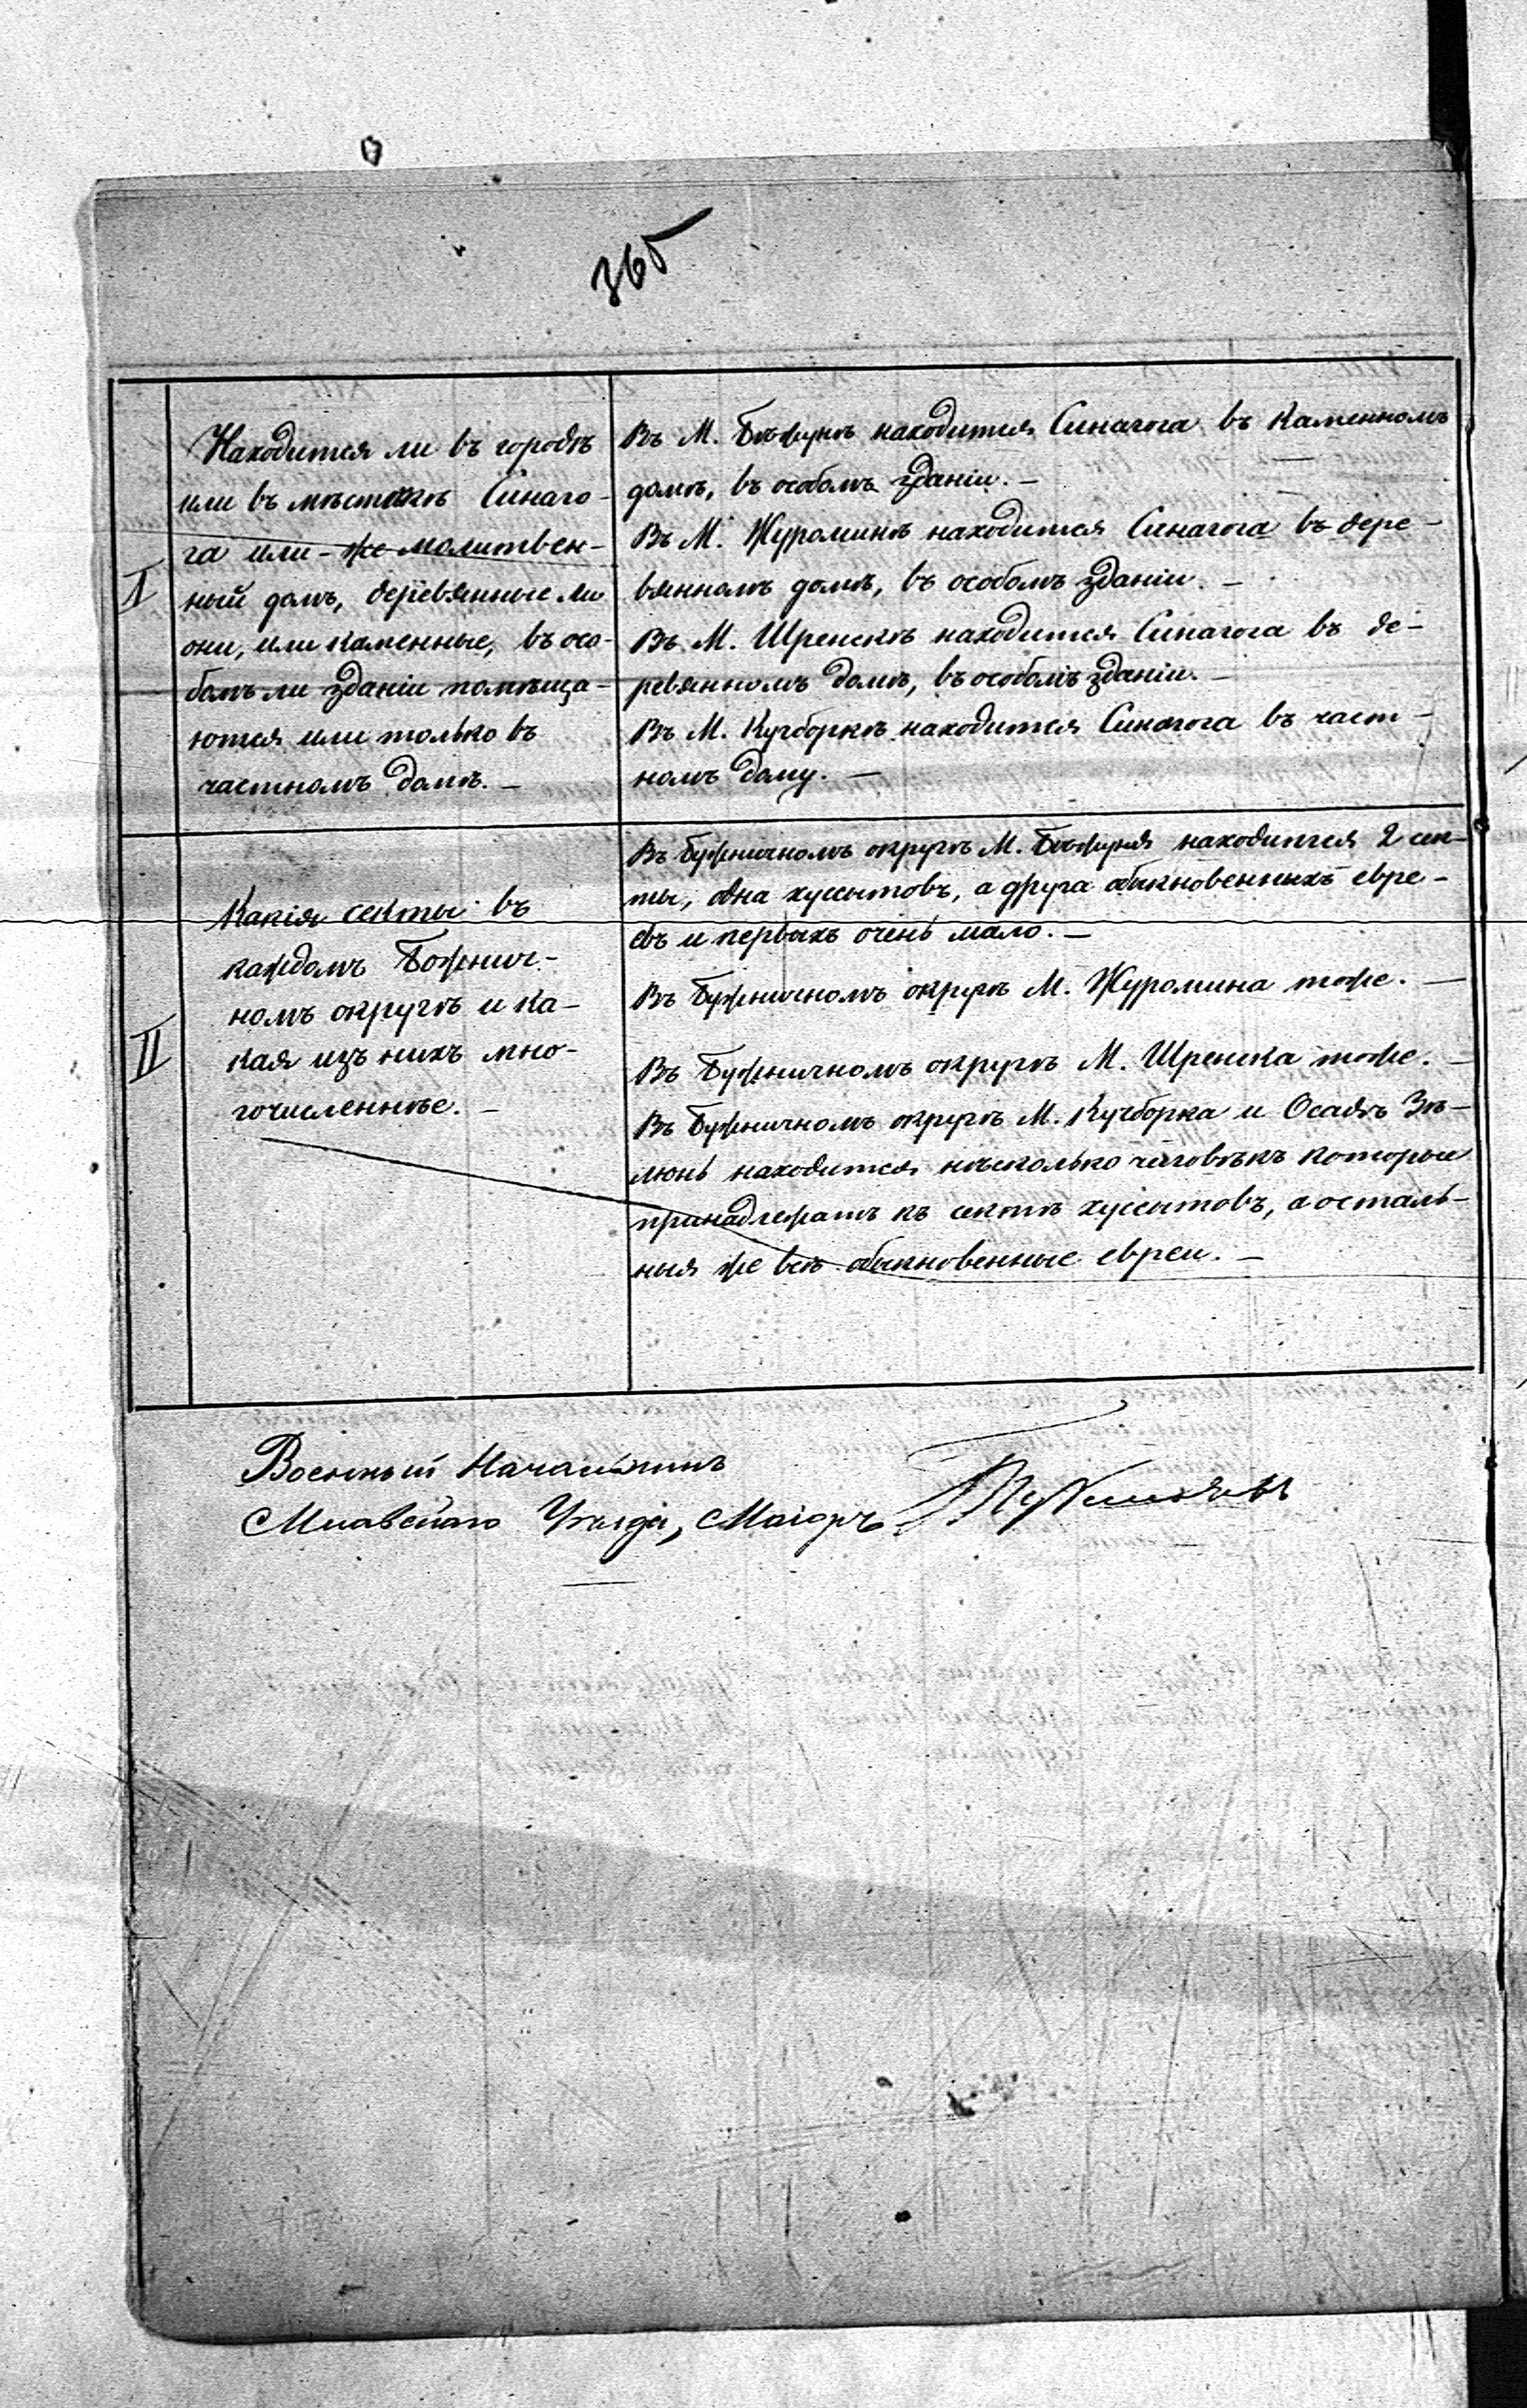 365
I
Находится ли въ городѣ
или въ мѣстѣчкѣ Синаго-
га или-же молитвен-
ный домъ, деревянные ли
они, или каменные, въ осо-
бомъ ли зданіи помѣща-
ются или только въ
частномъ домѣ. —
Въ М. Бѣжунѣ находится Синагога въ каменномъ
домѣ, въ особомъ зданіи. —
Въ М. Журоминѣ находится Синагога въ дере-
вянномъ домѣ, въ особомъ зданіи. —
Въ М. Шренскѣ находится Синагога въ де-
ревянномъ домѣ, въ особомъ зданіи. —
Въ М. Кучборкѣ находится Синагога въ част-
номъ дому. —
II
Какія секты въ
каждомъ Божнич-
номъ округѣ и ка-
кая изъ нихъ мно-
гочисленнѣе. —
Въ Бужничномъ округѣ М. Бѣжуня находится 2 сек-
ты, одна хуссытовъ, а друга обыкновенныхъ евре-
евъ и первыхъ очень мало. —
Въ Бужничномъ округѣ М. Журомина тоже. —
Въ Бужничномъ округѣ М. Шренска тоже. —
Въ Бужничномъ округѣ М. Кучборка и Осадѣ Зѣ-
люнь находится нѣсколько человѣкъ которые
принадлежатъ къ сектѣ хуссытовъ, а осталь-
ныя же всѣ обыкновенные евреи. —
Военный Начальникъ
Млавскаго Уѣзда, Маіоръ